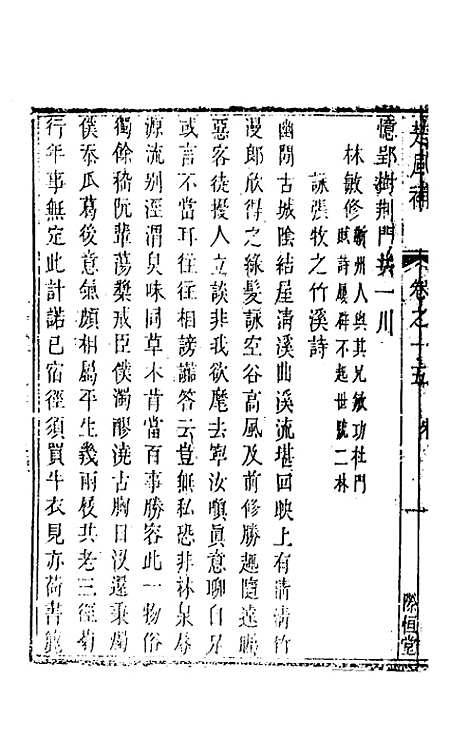 楚風補
卷之十五
際恒堂
憶郢樹荆門共一川
林敏修
蘄州人與其兄敏功杜門
賦詩屢辟不起世號二林
詠張牧之竹溪詩
幽閒古城陰結屋清溪曲溪流堪回映上有清清竹
漫郎欣得之綠髮詠空谷高風及前修勝趣隨遠矚
惡客徒授人立談非我欲麾去寧汝嗔眞意聊自足
或言不當耳往往相謗讟答云豈無私恐非林泉辱
源流别涇渭臭味同草木肯當百事勝容此一物俗
獨餘嵇阮輩蕩槳戒臣僕濁醪澆古胸日没還秉燭
僕忝瓜葛後意氣頗相屬平生幾兩屐共老三徑菊
行年事無定此計諾已宿徑須買牛衣見亦荷書簏